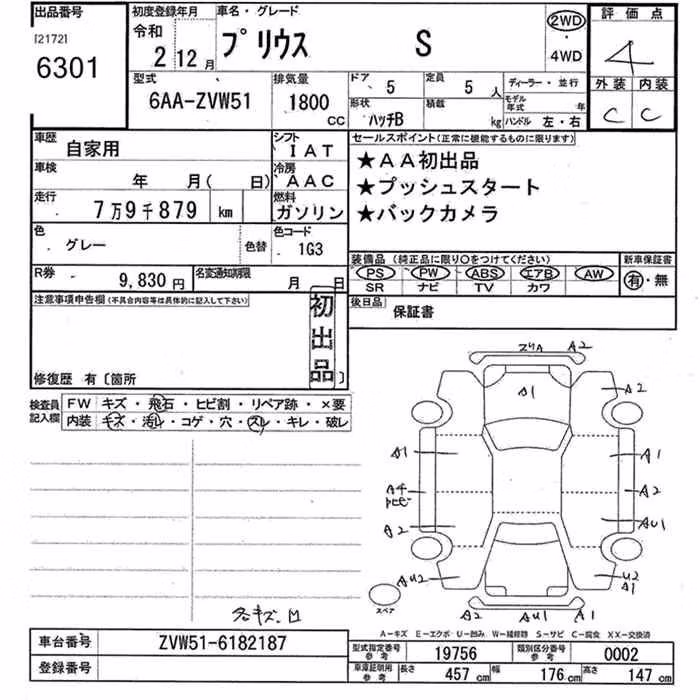 出品番号
[2172]
6301
初度登録年月
令和
2 12月
車名・グレード
プリウス S
2WD
・
4WD
評価点
4
外装 内装
C C
型式
6AA-ZVW51
排気量
1800
CC
ドア
5
定員
5 人
形状
ハッチB
積載
kg
ディーラー・並行
モデル年式 年
ハンドル 左・右
車歴
自家用
シフト
IAT
車検
年 月( 日)
冷房
AAC
走行
7万9千879 km
燃料
ガソリン
色
グレー
色替
色コード
1G3
R券
9,830円
名変通知期限
月 日
セールスポイント(正常に機能するものに限ります)
★AA初出品
★プッシュスタート
★バックカメラ
装備品(純正品に限り○をつけてください)
PS PW ABS エアB AW
SR ナビ TV カワ
新車保証書
有・無
後日品
保証書
注意事項申告欄(不具合内容等は具体的に記入して下さい)
初出品
修復歴 有〔箇所 〕
検査員
記入欄
FW キズ・飛石・ヒビ割・リペア跡・×要
内装 キズ・汚レ・コゲ・穴・スレ・キレ・破レ
A2
A1
A2
A1
A1
A4
A2
A2
AU1
AU2
U2
A1
スペア
A2
AU1
A1
A-キズ E-エクボ U-凹み W-補修跡 S-サビ C-腐食 XX-交換済
車台番号
ZVW51-6182187
登録番号
型式指定番号
参考
19756
類別区分番号
参考
0002
車庫証明用
参考
長さ
457 cm
幅
176 cm
高さ
147 cm